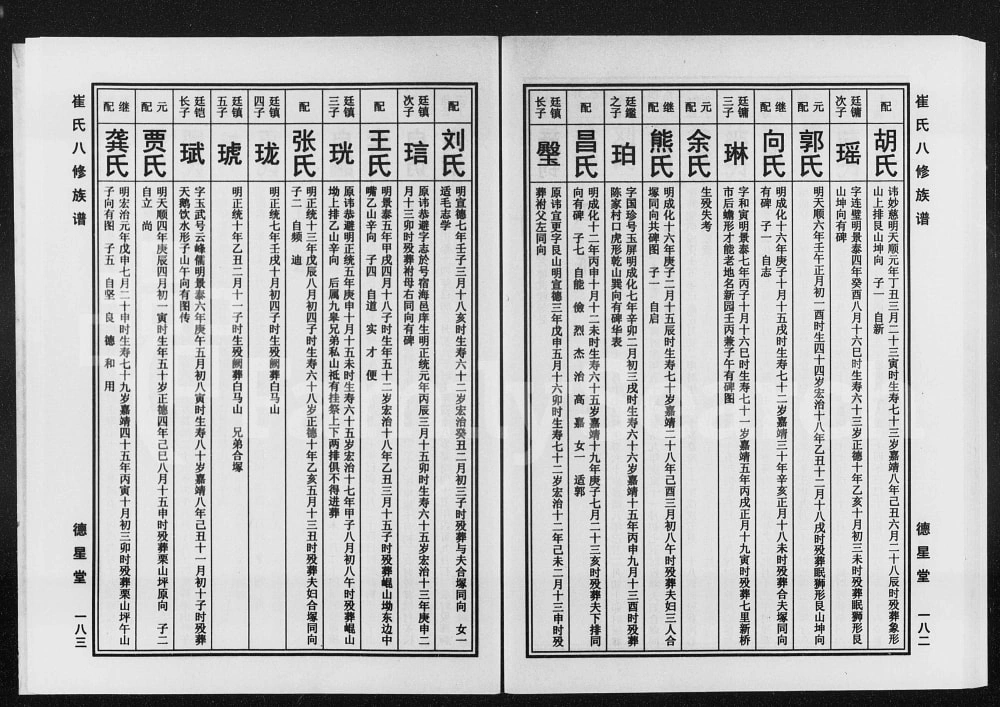 崔氏八修族谱
德星堂
一八二
配
胡氏
讳妙慈明天顺元年丁丑三月二十三寅时生寿七十三岁嘉靖八年己丑六月二十八辰时殁葬象形
山上排艮山坤向 子一 自新
廷镛次子
瑶
字连璧明景泰四年癸酉八月十六巳时生寿六十三岁正德十年乙亥十月初三未时殁葬眠狮形艮
山坤向有碑
元配
郭氏
明天顺六年壬午正月初一酉时生四十四岁宏治十八年乙丑十二月十八戌时殁葬眠狮形艮山坤向
继配
向氏
明成化十六年庚子十月十五戌时生寿七十二岁嘉靖三十年辛亥正月十八未时殁葬合夫塚同向
有碑 子一 自志
廷镛三子
琳
字和寅明景泰七年丙子十月十六巳时生寿七十一岁嘉靖五年丙戌正月十九寅时殁葬七里新桥
市后蟾形才能老地名新园壬丙兼子午有碑图
元配
余氏
生殁失考
继配
熊氏
明成化十六年庚子二月十五辰时生寿七十岁嘉靖二十八年己酉三月初八午时殁葬夫妇三人合
塚同向共碑图 子一 自启
廷鑑之子
珀
字国珍号玉屏明成化七年辛卯二月初三戌时生寿六十六岁嘉靖十五年丙申九月十三酉时殁葬
陈家村口虎形乾山巽向有碑华表
配
昌氏
明成化十二年丙申十月十二未时生寿六十五岁嘉靖十九年庚子七月二十三亥时殁葬夫下排同
向有碑 子七 自能 儉 烈 杰 治 高 嘉 女一 适郭
廷镇长子
原讳宜更字艮山明宣德三年戊申五月十六卯时生寿七十二岁宏治十二年己未二月十三申时殁
葬祔父左同向
配
刘氏
明宣德七年壬子三月十八亥时生寿六十二岁宏治癸丑二月初三子时殁葬与夫合塚同向 女一
适毛志学
廷镇次子
琂
原讳恭避字志於号宿海邑庠生明正统元年丙辰三月十五卯时生寿六十五岁宏治十三年庚申二
月十三卯时殁葬祔母右同向有碑
配
王氏
明景泰五年甲戌四月十八子时生年五十二岁宏治十八年乙丑三月十五子时殁葬崐山坳东边中
嘴乙山辛向 子四 自道 实 才 便
廷镇三子
珖
原讳恭避明正统五年庚申十月十五未时生寿六十五岁宏治十七年甲子八月初八午时殁葬崐山
坳上排乙山辛向 后属九皋兄弟私山祗有挂祭上下两排俱不得进葬
配
张氏
明正统十三年戊辰八月初四子时生寿六十八岁正德十年乙亥五月十三丑时殁葬夫妇合塚同向
子二 自频 迪
廷镇四子
珑
明正统七年壬戌十月初四子时生殁阙葬白马山
廷镇五子
琥
明正统十年乙丑二月十一子时生殁阙葬白马山 兄弟合塚
廷铠长子
珷
字玉武号云峰儒明景泰六年庚午五月初八寅时生寿八十岁嘉靖八年己丑十一月初十子时殁葬
天鹅饮水形子山午向有图传
元配
贾氏
明天顺四年庚辰四月初一寅时生年五十岁正德四年己巳八月十五申时殁葬栗山坪原向 子二
自立 尚
继配
龚氏
明宏治元年戊申七月二十申时生寿七十九岁嘉靖四十五年丙寅十月初三卯时殁葬栗山坪午山
子向有图 子五 自坚 良 德 和 用
崔氏八修族谱
德星堂
一八三